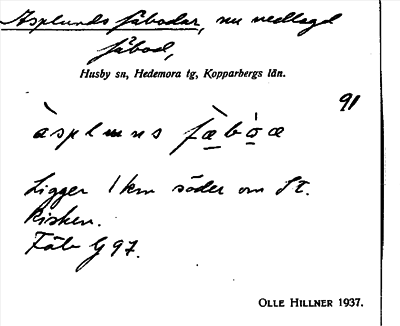 Asplunds fäbodar, nu nedlagd
fäbod,
Husby sn, Hedemora tg, Kopparbergs län.
91
àspluns fæ̀bò̠æ
Ligger 1 km söder om St.
Risken.
Fäb G 97.
OLLE HILLNER 1937.